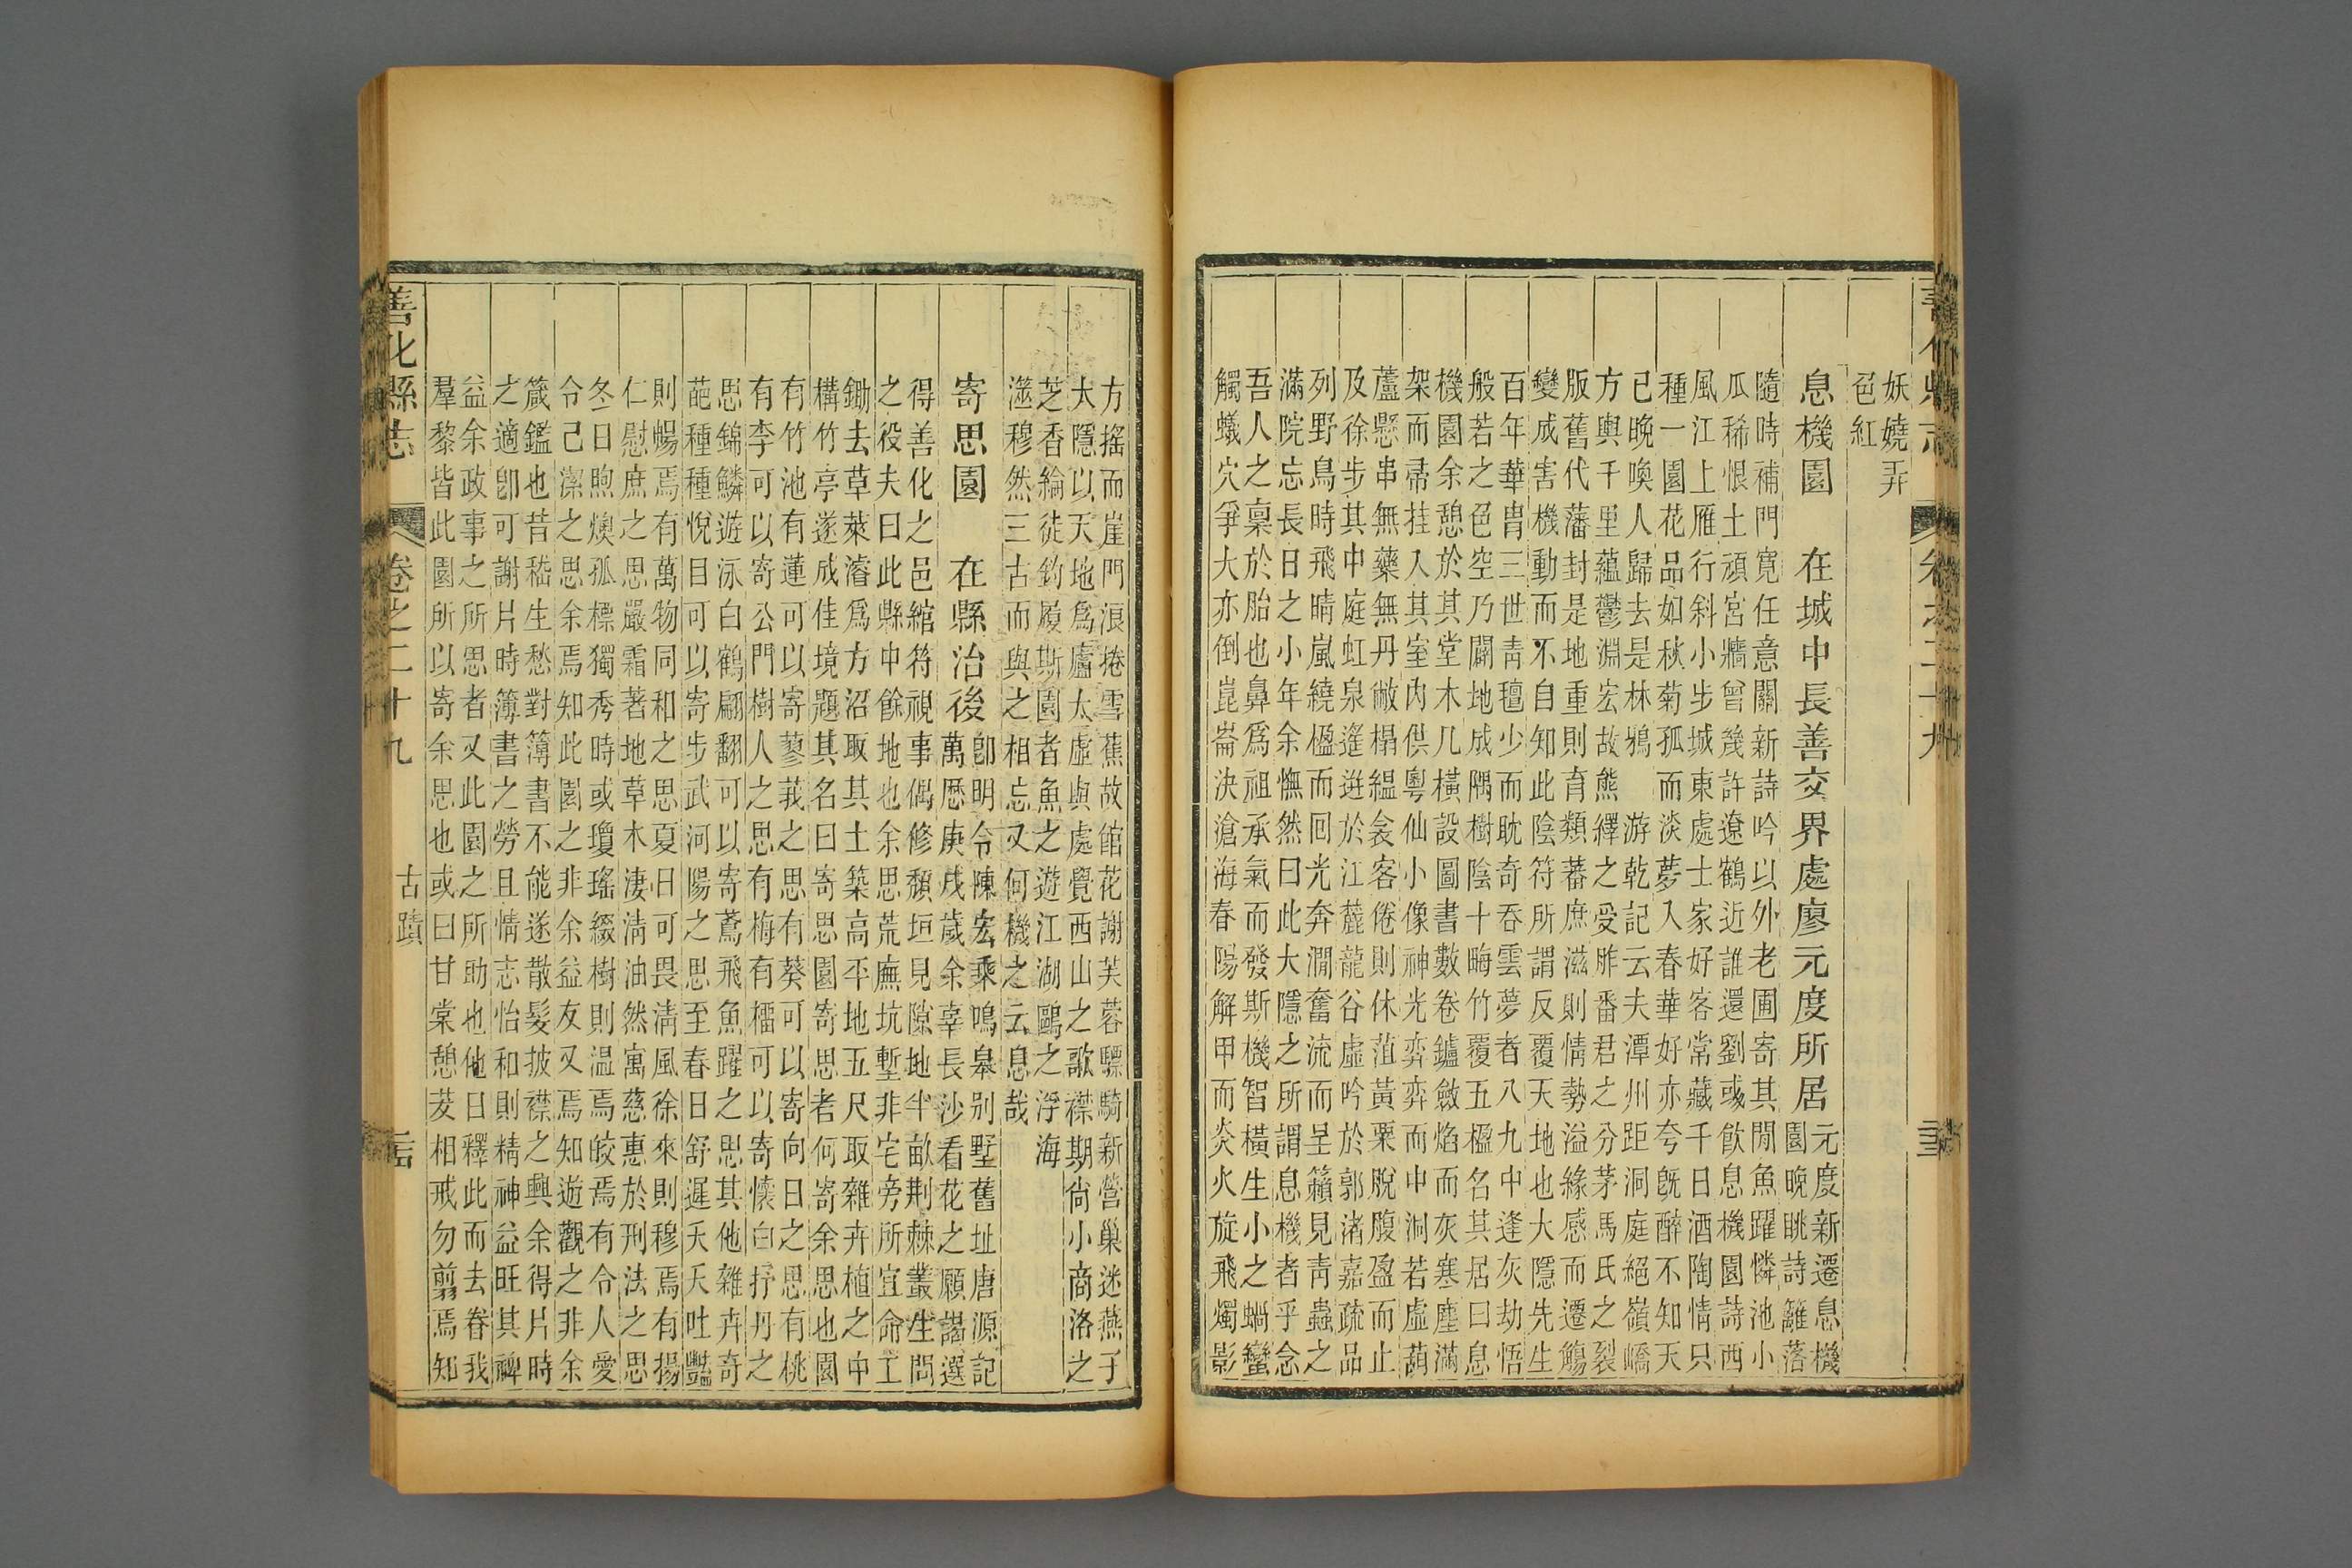 妖嬈弄
色紅
息機園 在城中長善交界處廖元度所居
元度新遷息機
園晚眺詩籬落
隨時補門寛任意關新詩吟以外老圃寄其閒魚躍憐池小
瓜稀恨土頑宮牆曾幾許遼鶴近誰還劉彧飲息機園詩西
風江上雁行斜小步城東處士家好客常藏千日酒陶情只
種一園花品如秋菊孤而淡夢入春華好亦夸旣醉不知天
已晚喚人歸去是林鴉 游乾記云夫潭州距洞庭絕嶺嶠
方輿千里蘊鬱淵宏故熊繹之受胙番君之分茅馬氏之裂
版舊代藩封是地重則育類蕃庶滋則情勢溢緣感而遷觴
變成害機動而不自知此陰符所謂反覆天地也大隱先生
百年華胄三世靑氊少而耽奇吞雲夢者八九中逢灰劫悟
般若之色空乃闢地成隅樹陰十畮竹覆五楹名其居曰息
機園余憩於其堂木几橫設圖書數卷鑪斂焰而灰塞塵滿
架而帚挂入其室內供粵仙小像神光弈弈而中洞若虛葫
蘆懸串無藥無丹敝榻緼衾客倦則休菹黃粟脫腹盈而止
及徐步其中庭虹泉遙逝於江麓龍谷虛吟於郭渚嘉疏品
列野鳥時飛晴嵐繞楹而回光奔澗奮流而呈籟見靑蟲之
滿院忘長日之小年余憮然曰此大隱之所謂息機者乎念
吾人之稟於胎也鼻爲祖承氣而發斯機智橫生小之蝸蠻
觸蟻穴爭大亦倒崑崙決滄海春陽解甲而炎火旋飛燭影
方搖而崖門浪捲雪蕉故館花謝芙蓉驃騎新營巢迷燕子
大隱以天地爲廬太虛與處覺西山之歌襟期尙小商洛之
芝香綸徒釣履斯園者魚之遊江湖鷗之浮海
澨穆然三古而與之相忘又何機之云息哉
寄思園 在縣治後
卽明令陳宏乘鳴皋别墅舊址唐源記
萬曆庚戌歲余宰長沙看花之願謁選
得善化之邑綰符視事偶修頽垣見隙地半畝荆棘叢生問
之役夫曰此縣中餘地也余思荒廡坑塹非宅旁所宜命工
鋤去草萊濬爲方沼取其土築高平地五尺取雜卉植之中
構竹亭遂成佳境題其名曰寄思園寄思者何寄余思也園
有竹池有蓮可以寄蓼莪之思有葵可以寄向日之思有桃
有李可以寄公門樹人之思有梅有橊可以寄懷白抒丹之
思錦鱗遊泳白鶴翩翻可以寄鳶飛魚躍之思其他雜卉奇
葩種種悅目可以寄步武河陽之思至春日舒遲夭夭吐豔
則暢焉有萬物同和之思夏日可畏淸風徐來則穆焉有揚
仁慰庶之思嚴霜著地草木淒淸油然寓慈惠於刑法之思
冬日煦燠孤標獨秀時或瓊瑤綴樹則温焉皎焉有令人愛
令己潔之思余焉知此園之非余益友又焉知遊觀之非余
箴鑑也昔嵇生愁對簿書不能遂散髮披襟之興余得片時
之適卽可謝片時簿書之勞且情志怡和則精神益旺其裨
益余政事之所思者又此園之所助也他日釋此而去眷我
羣黎皆此園所以寄余思也或曰甘棠憩茇相戒勿剪焉知
善化縣志 卷之二十九 古蹟